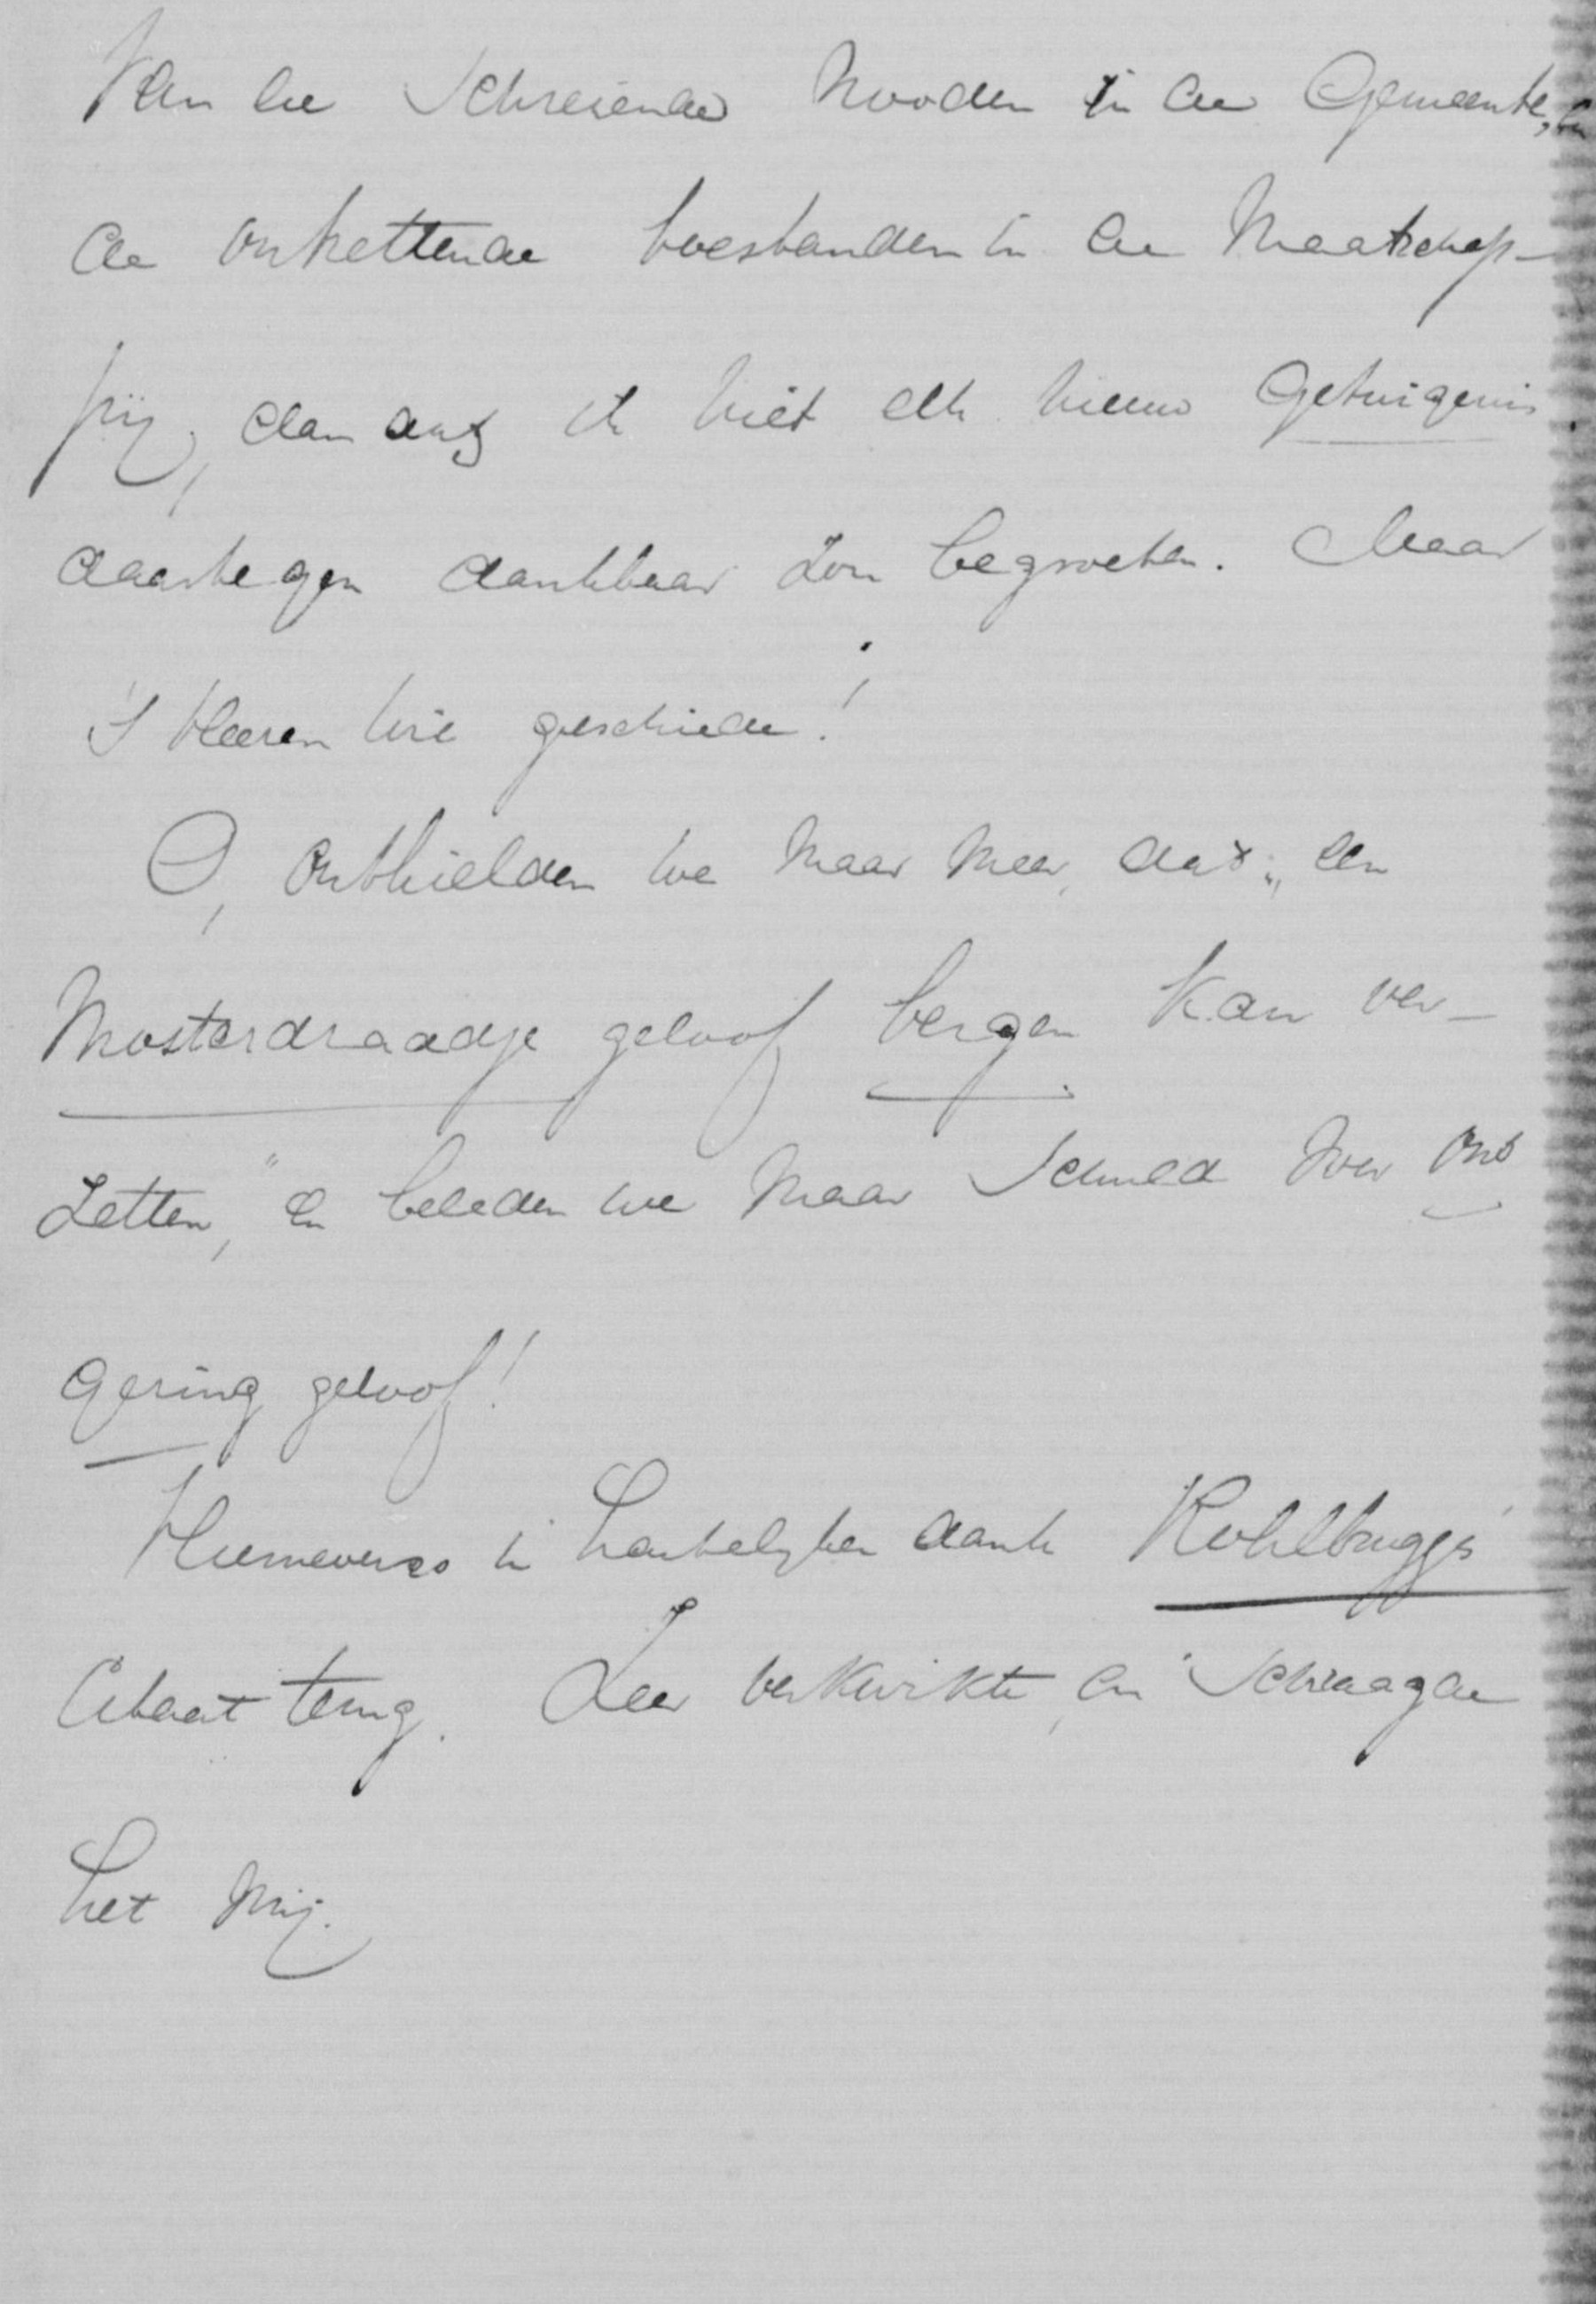 van de schreiende nooden in de Gemeente, en
de ontzettende toestanden in de Maatschap-
pij, dan dat ik niet elk nieuw getuigenis
daartegen dankbaar zou begroeten. Maar
's Heeren wil geschiede!
O, onthielden we maar meer, dat „een
mosterdzaadje geloof bergen kan ver-
zetten," en beleden we maar schuld over ons
gering geloof!
Hiernevens in hartelijken dank Kohlbrugge's
Citaat terug. Zeer verkwikte, en schraagde
het mij.